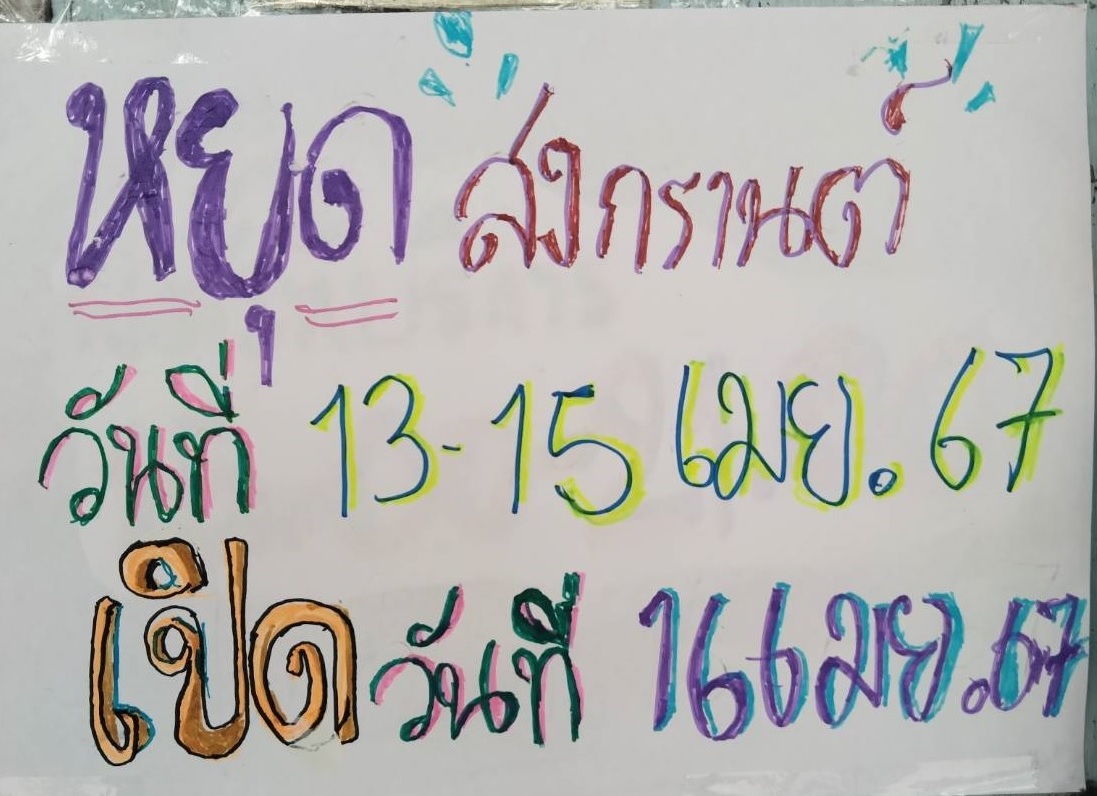 หยุด สงกรานต์
วันที่ 13-15 เมย. 67
เปิด วันที่ 16 เมย. 67